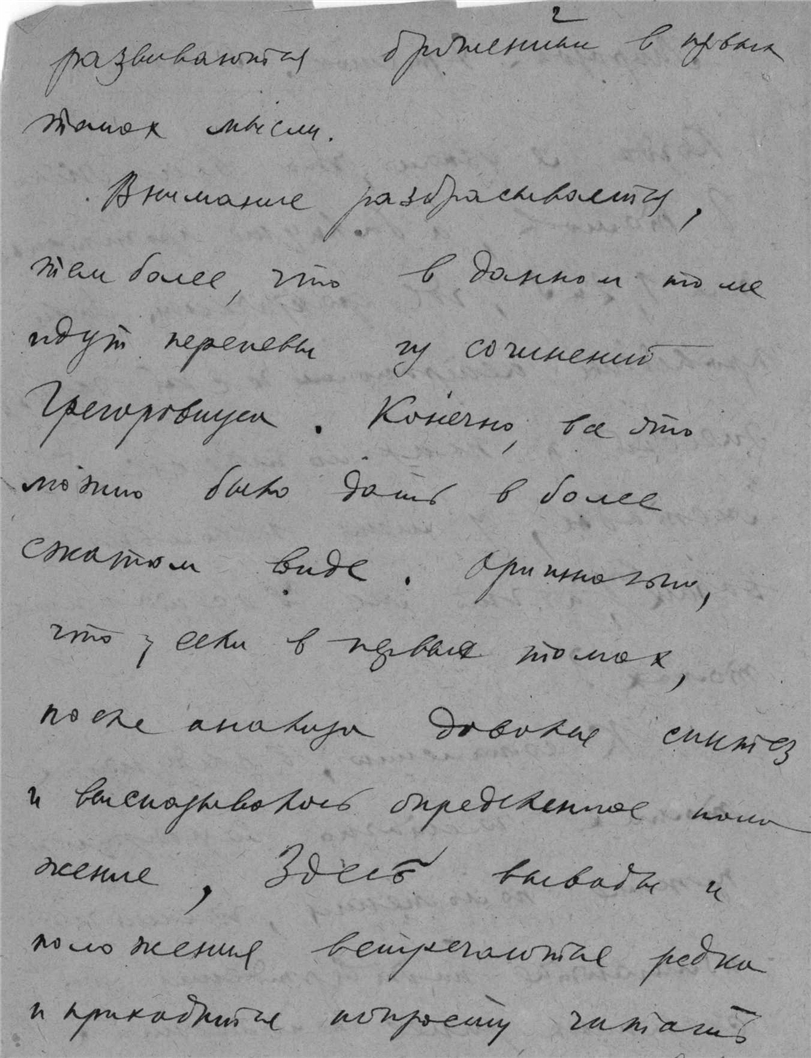 2
развиваются брошенный в первых
томах мысли.
Внимание разбрасывается,
тем более, что в данном томе
идут перепевы из сочинений
Грегоровиуса. Конечно, все это
можно было дать в более
сжатом виде.
что, если в первых томах,
после анализа давался синтез
и высказывалось определенное поло
жение, здесь выводы и
положения встречаются редко
и приходится попросту читать